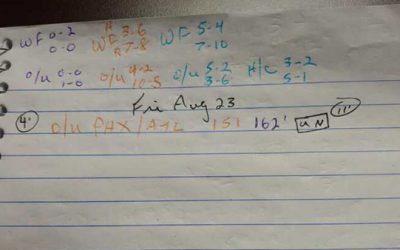 WF 0-2 H 3-6 WF 5-4
0-0 R 7-8 7-10
o/u 0-0 o/u 4-2 o/u 5-2 H/C 3-2
1-0 10-5 3-6 5-1
Fri Aug 23
4' o/u PHX/ATL 151 162' UN 11'